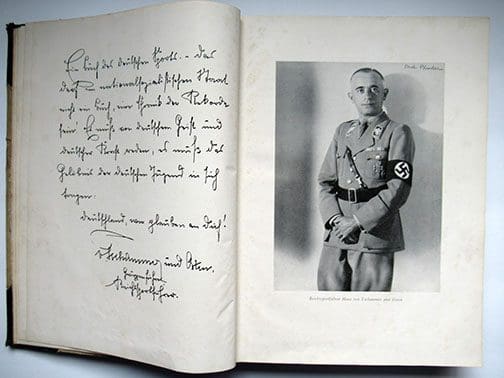 Ein Buch des deutschen Sports. – Das
darf im nationalsozialistischen Staat
nicht ein Buch nur der Rekorde
sein. Es muß von deutschem Geist und
deutscher Kraft reden, es muß das
Gelöbnis der deutschen Jugend in sich
tragen:
Deutschland, wir glauben an Dich!
v Tschammer und Osten.
Reichssportführer.
Reichssportführer Hans von Tschammer und Osten